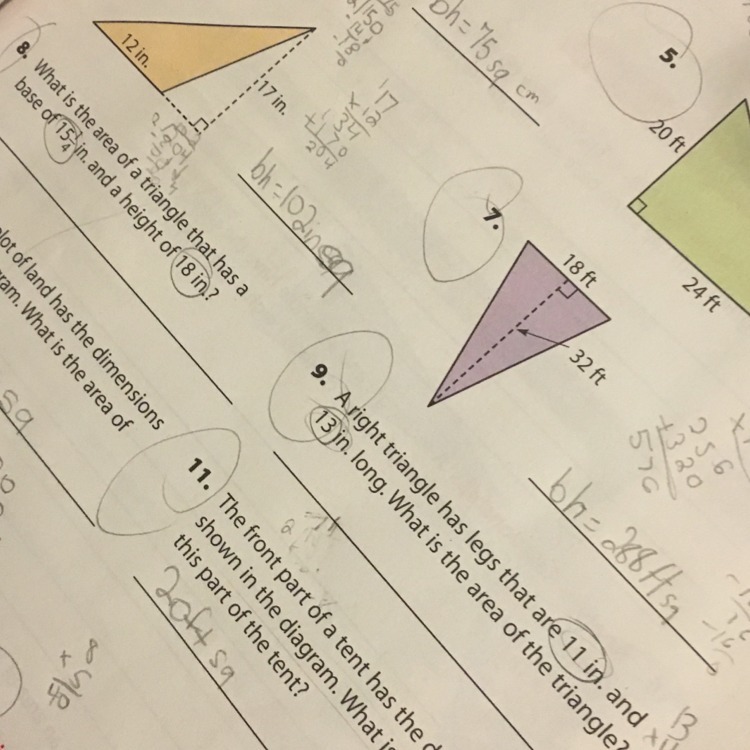 12 in.
17 in.
bh = 102 in sq
8. What is the area of a triangle that has a
base of 15 1/4 in. and a height of 18 in.?
bh = 75 sq cm
5.
20 ft
24 ft
7.
18 ft
32 ft
bh = 288 ft sq
lot of land has the dimensions
ram. What is the area of
sq
9. A right triangle has legs that are 11 in. and
13 in. long. What is the area of the triangle?
11. The front part of a tent has the
shown in the diagram. What is
this part of the tent?
20 ft sq
17
x 12
34
+ 170
204
256
+ 320
576
13